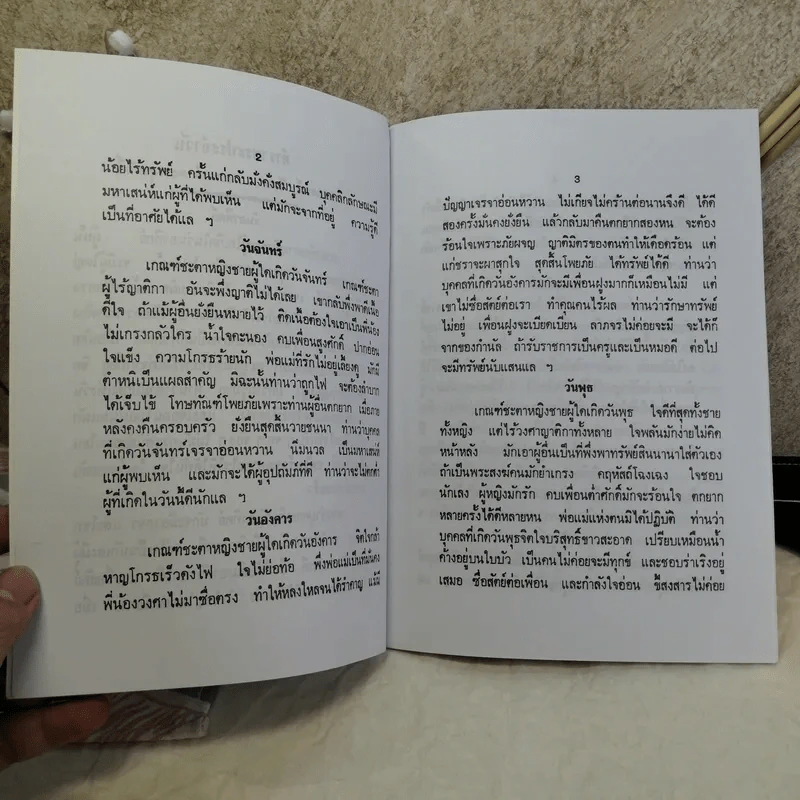 2
น้อยไร้ทรัพย์ ครั้นแก่กลับมั่งคั่งสมบูรณ์ บุคคลิกลักษณะมี
มหาเสน่ห์แก่ผู้ที่ได้พบเห็น แต่มักจะจากที่อยู่ ความรู้ดี
เป็นที่อาศัยได้แล ฯ
วันจันทร์
เกณฑ์ชะตาหญิงชายผู้ใดเกิดวันจันทร์ เกณฑ์ชะตา
ผู้ไร้ญาติกา อันจะพึ่งญาติไม่ได้เลย เขากลับพึ่งพาตีเนื้อ
ดีใจ ถ้าแม้ผู้อื่นยั่งยืนหมายไว้ ติดเนื้อต้องใจเอาเป็นพี่น้อง
ไม่เกรงกลัวใคร น้ำใจคะนอง คบเพื่อนสูงศักดิ์ ปากอ่อน
ใจแข็ง ความโกรธร้ายนัก พ่อแม่ที่รักไม่อยู่เลี้ยงดู มักมี
ตำหนิเป็นแผลสำคัญ มิฉะนั้นท่านว่าถูกไฟ จะต้องลำบาก
ได้เจ็บไข้ โทษทัณฑ์โพยภัยเพราะท่านผู้อื่นตกยาก เมื่อภาย
หลังคงคืนครอบครัว ยั่งยืนสุดสิ้นวายชนนา ท่านว่าบุคคล
ที่เกิดวันจันทร์เจรจาอ่อนหวาน นิ่มนวล เป็นมหาเสน่ห์
แก่ผู้พบเห็น และมักจะได้ผู้อุปถัมภ์ที่ดี ท่านว่าจะไม่ตกต่ำ
ผู้ที่เกิดในวันนี้ดีนักแล ฯ
วันอังคาร
เกณฑ์ชะตาหญิงชายผู้ใดเกิดวันอังคาร จิตใจกล้า
หาญโกรธเร็วดังไฟ ใจไม่ย่อท้อ พึ่งพ่อแม่เป็นที่มั่นคง
พี่น้องวงศาไม่มาซื่อตรง ทำให้หลงใหลจนได้รำคาญ แม้มี
3
ปัญญาเจรจาอ่อนหวาน ไม่เกียจไม่คร้านต่อนานจึงดี ได้ดี
สองครั้งมั่นคงยั่งยืน แล้วกลับมาคืนตกยากสองหน จะต้อง
ร้อนใจเพราะภัยผจญ ญาติมิตรของตนทำให้เดือดร้อน แต่
แก่ชราจะผาสุกใจ สุดสิ้นโพยภัย ได้ทรัพย์ได้ดี ท่านว่า
บุคคลที่เกิดวันอังคารมักจะมีเพื่อนฝูงมากก็เหมือนไม่มี แต่
เขาไม่ซื่อสัตย์ต่อเรา ทำคุณคนไร้ผล ท่านว่ารักษาทรัพย์
ไม่อยู่ เพื่อนฝูงจะเบียดเบียน ลาภจรไม่ค่อยจะมี จะได้ก็
จากของกำนัล ถ้ารับราชการเป็นครูและเป็นหมอดี ต่อไป
จะมีทรัพย์นับแสนแล ฯ
วันพุธ
เกณฑ์ชะตาหญิงชายผู้ใดเกิดวันพุธ ใจดีที่สุดทั้งชาย
ทั้งหญิง แต่ไร้วงศาญาติกาทั้งหลาย ใจพลันมักง่ายไม่คิด
หน้าหลัง มักเอาผู้อื่นเป็นที่พึ่งพาทรัพย์สินนานาใส่ตัวเอง
ถ้าเป็นพระสงฆ์คนมักยำเกรง คฤหัสถ์โฉงเฉง ใจชอบ
นักเลง ผู้หญิงมักรัก คบเพื่อนต่ำศักดิ์มักจะร้อนใจ ตกยาก
หลายครั้งได้ดีหลายหน พ่อแม่แห่งตนมิได้ปฏิบัติ ท่านว่า
บุคคลที่เกิดวันพุธจิตใจบริสุทธิ์ขาวสะอาด เปรียบเหมือนน้ำ
ค้างอยู่บนใบบัว เป็นคนไม่ค่อยจะมีทุกข์ และชอบร่าเริงอยู่
เสมอ ซื่อสัตย์ต่อเพื่อน และกำลังใจอ่อน ขี้สงสารไม่ค่อย